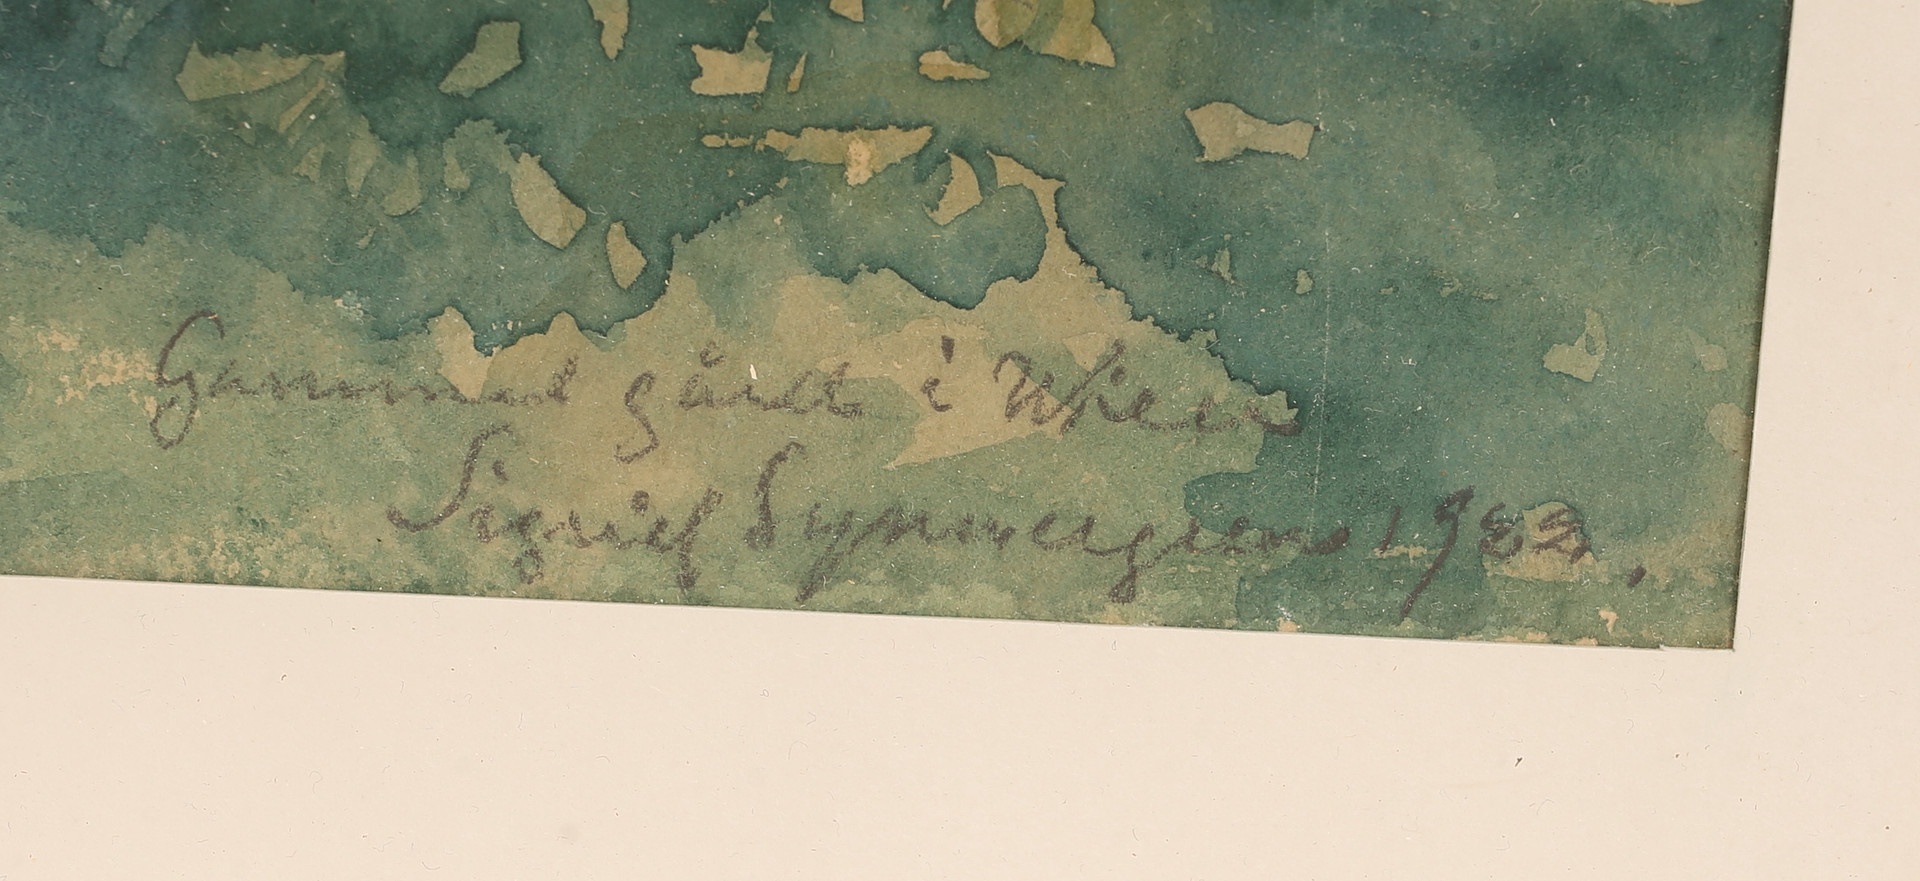 Gammal gård i Wien
Sigrid Synnergren 1982.